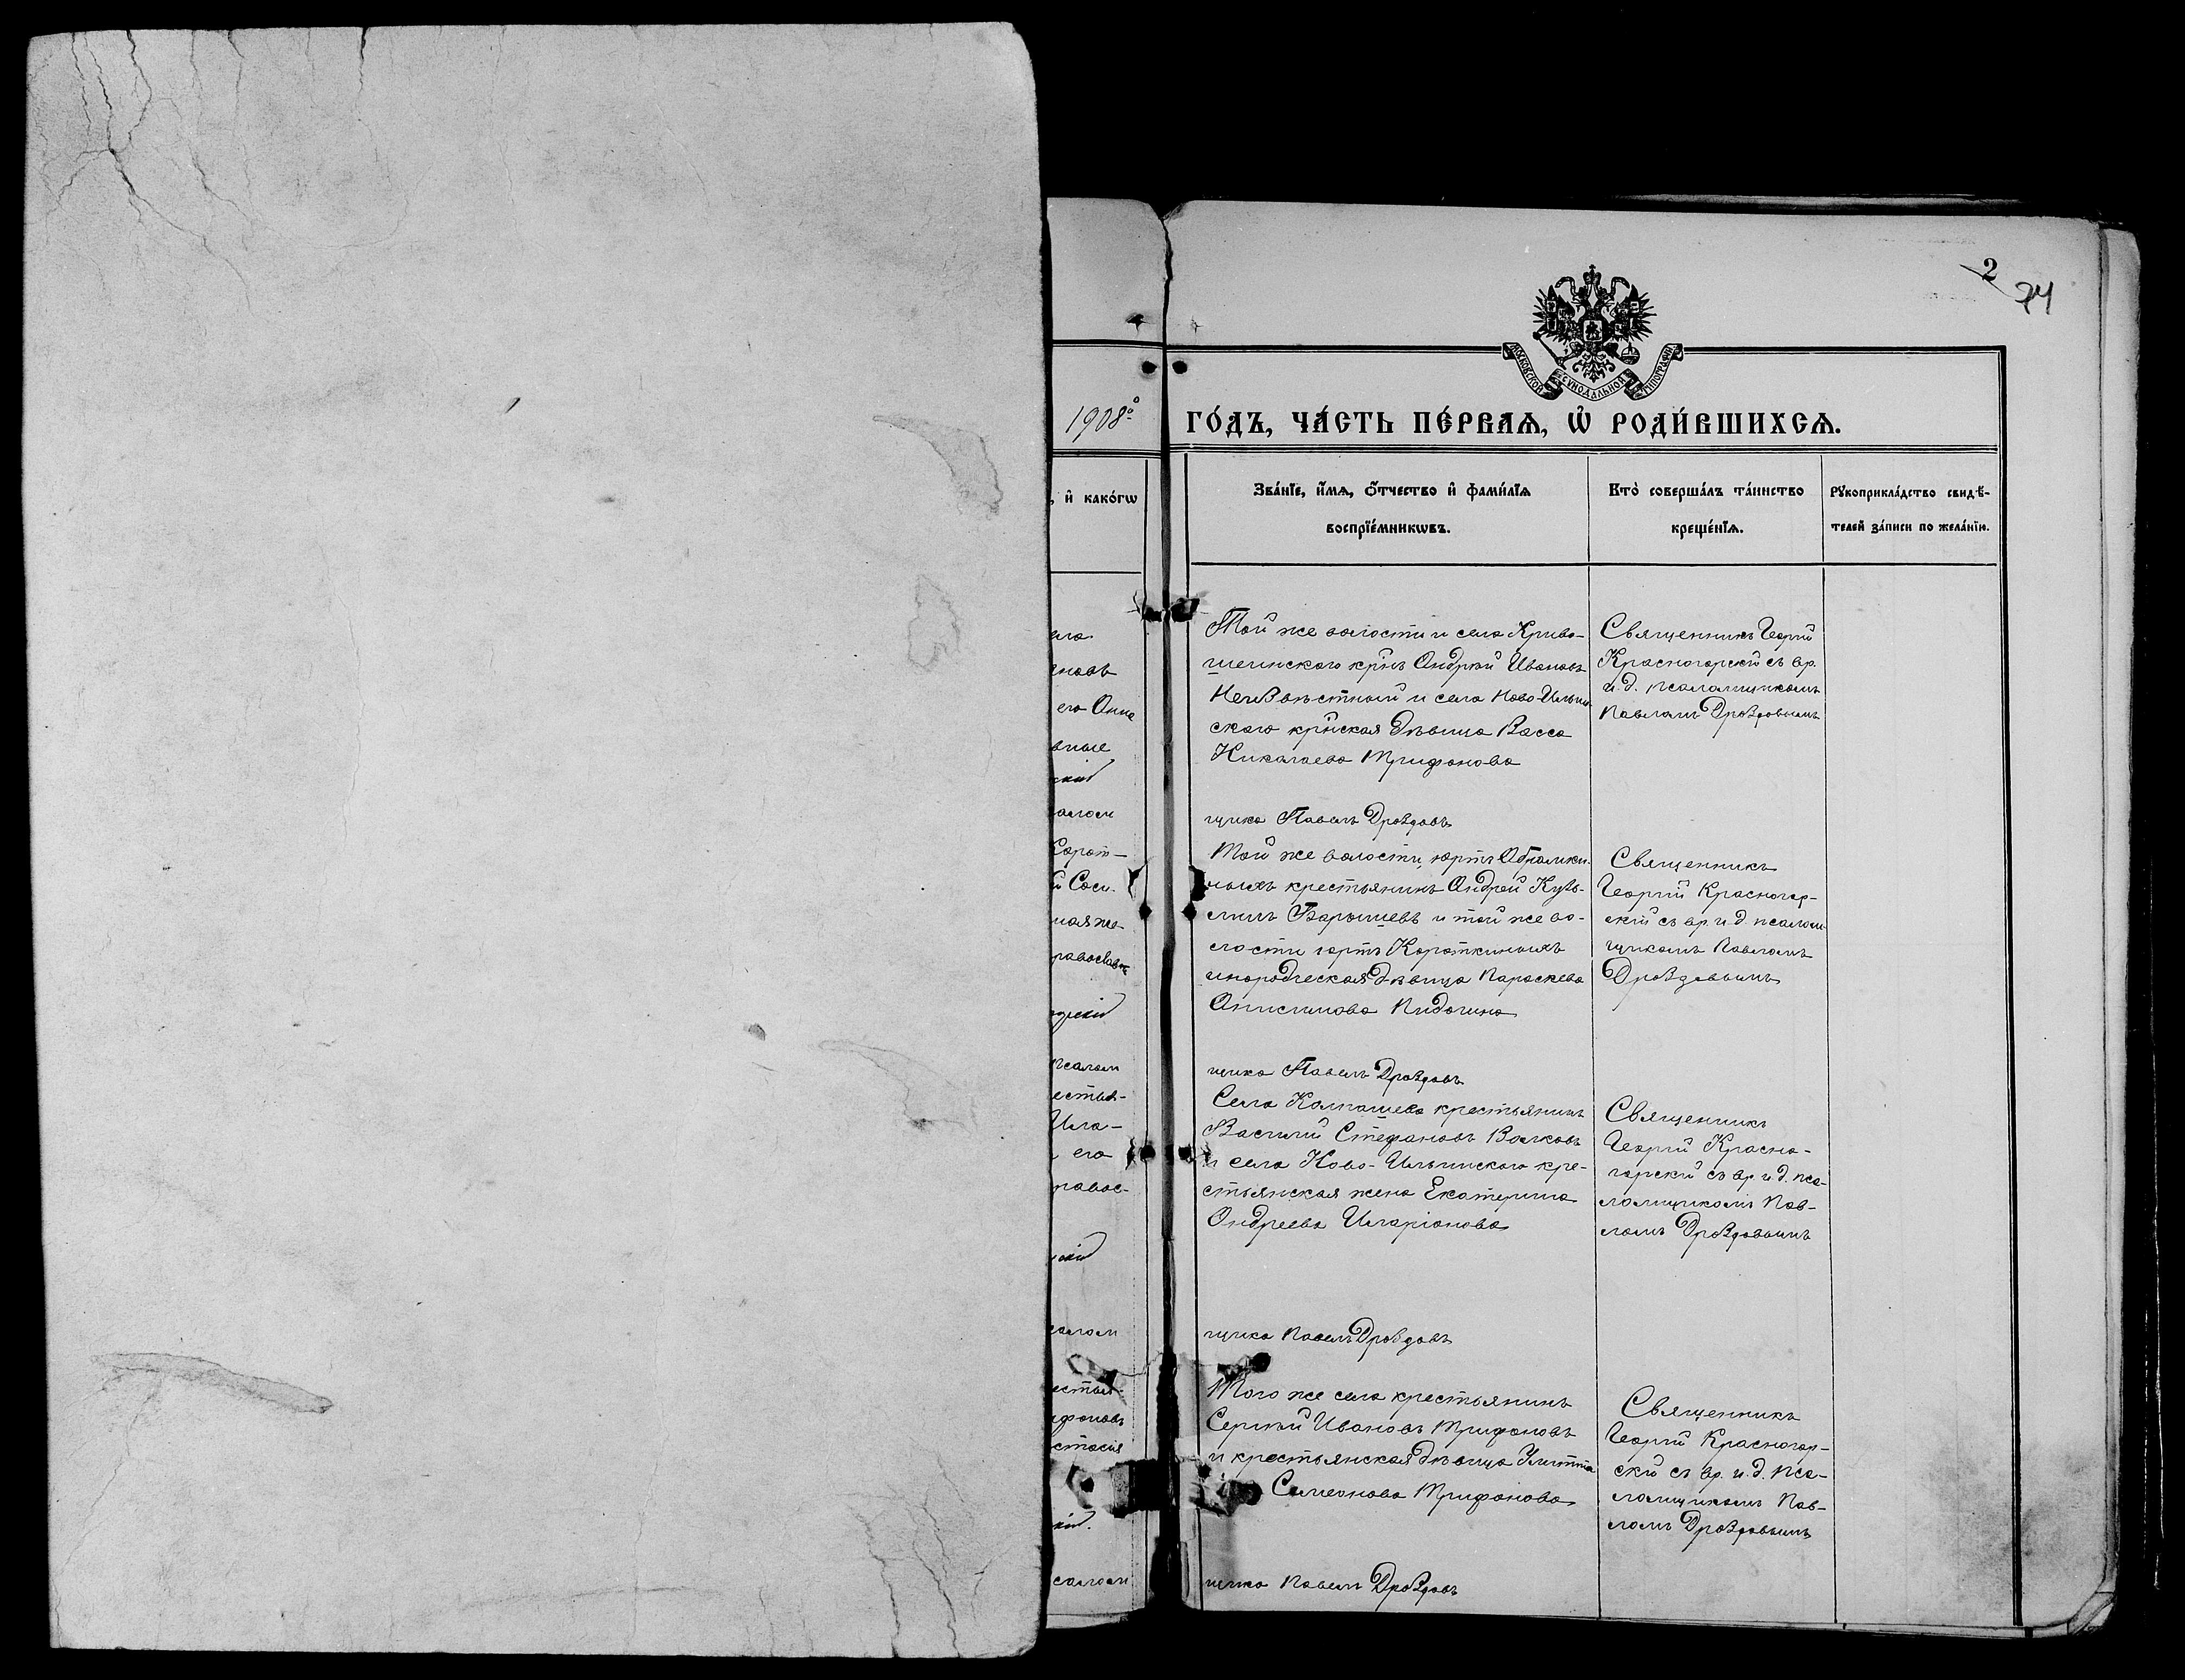 2
74
МОСКОВСКОЙ СѴНОДАЛЬНОЙ ТИПОГРАФІИ
1908º ГО́ДЪ, ЧА́СТЬ ПЕ́РВАѦ, Ѡ҆ РОДИ́ВШИХСѦ.
, и҆ како́гѡ
Зва́нїе, и҆́мѧ, ѻ҆́тчество и҆ фами́лїѧ
воспрїе́мникѡвъ.
Кто̀ соверша́лъ та́инство
креще́нїѧ.
Рꙋкоприкла́дство свидѣ́-
телей за́писи по жела́нїю.
Той же волости и села Криво-
шеинскаго крⷭ҇нъ Андрей Ивановъ
Неизвѣстный и села Ново-Ильин-
скаго крⷭ҇нская дѣвица Васса
Николаева Трифонова
Священникъ Георгій
Красногорскій съ вр.
и. д. псаломщикомъ
Павломъ Дроздовымъ
его Анна
вные
скій
псалом
щика Павелъ Дроздовъ
Той же волости, юртъ Абрамки-
ныхъ крестьянинъ Андрей Кузь-
минъ Барышевъ и той же во-
лости юртъ Короткиныхъ
инородческая дѣвица Параскева
Анисимова Пидогина
Священникъ
Георгій Красногор-
скій съ вр. и. д. псалом-
щикомъ Павломъ
Дроздовымъ
ная же-
равослав
псалом
щика Павелъ Дроздовъ
Села Колпашева крестьянинъ
Василій Стефановъ Волковъ
и села Ново-Ильинскаго кре-
стьянская жена Екатерина
Андреева Иларіонова
Священникъ
Георгій Красно-
горскій съ вр. и. д. пса-
ломщикомъ Пав-
ломъ Дроздовымъ
естья-
Ила-
его
равос-
скій
салом
щика Павелъ Дроздовъ
Того же села крестьянинъ
Сергѣй Ивановъ Трифоновъ
и крестьянская дѣвица Улитта
Симеонова Трифонова
Священникъ
Георгій Красногор-
скій съ вр. и. д. пса-
ломщикомъ Пав-
ломъ Дроздовымъ
естья-
ифоновъ
стасія
кій.
салом
щика Павелъ Дроздовъ